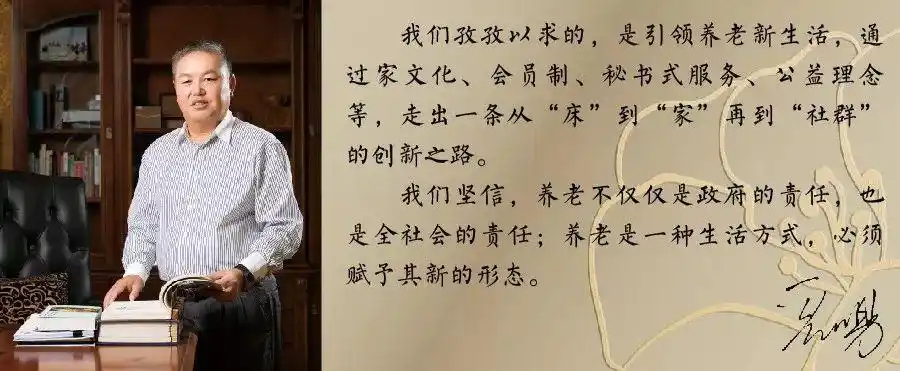 我们孜孜以求的，是引领养老新生活，通
过家文化、会员制、秘书式服务、公益理念
等，走出一条从“床”到“家”再到“社群”
的创新之路。
我们坚信，养老不仅仅是政府的责任，也
是全社会的责任；养老是一种生活方式，必须
赋予其新的形态。